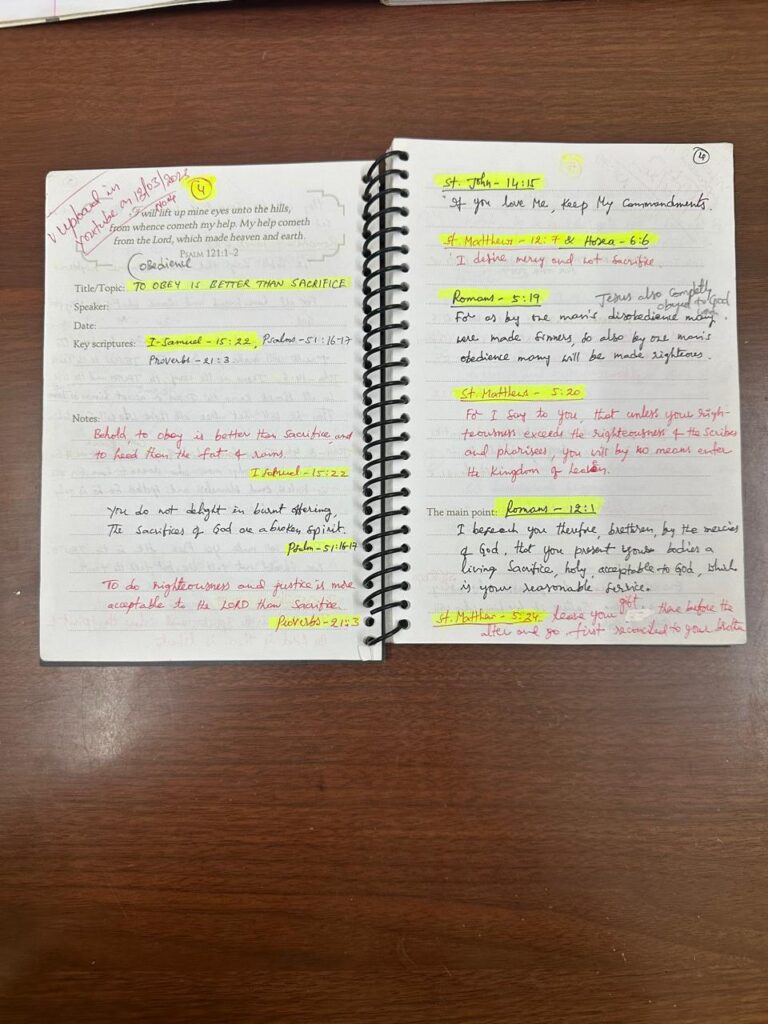 Upload in
Youtube on 18/03/2023
Note
4
I will lift up mine eyes unto the hills,
from whence cometh my help. My help cometh
from the Lord, which made heaven and earth.
PSALM 121:1–2
Obedience
Title/Topic: TO OBEY IS BETTER THAN SACRIFICE
Speaker:
Date:
Key scriptures: I-Samuel-15:22, Psalms-51:16-17
Proverbs-21:3
Notes:
Behold, to obey is better than Sacrifice, and
to heed than the fat of rams.
I Samuel-15:22
You do not delight in burnt offering,
The Sacrifices of God are a broken Spirit.
Psalm-51:16-17
To do righteousness and justice is more
acceptable to the LORD than Sacrifice.
Proverbs-21:3
4
St. John-14:15
If you love Me, Keep My Commandments.
St. Matthew-12:7 & Hosea-6:6
I desire mercy and not Sacrifice
Romans-5:19
Jesus also
obeyed to God
For as by one man's disobedience many
were made Sinners, So also by one man's
obedience many will be made righteous.
St. Matthew-5:20
For I Say to you, that unless your righ-
teousness exceeds the righteousness of the Scribes
and pharisees, you will by no means enter
the Kingdom of
The main point: Romans-12:1
I beseech you therefore, brethren, by the mercies
of God, that you present your bodies a
living Sacrifice, holy, acceptable to God, which
is your reasonable Service.
St. Matthew-5:24 leave your gift there before the
alter and go first reconciled to your brother